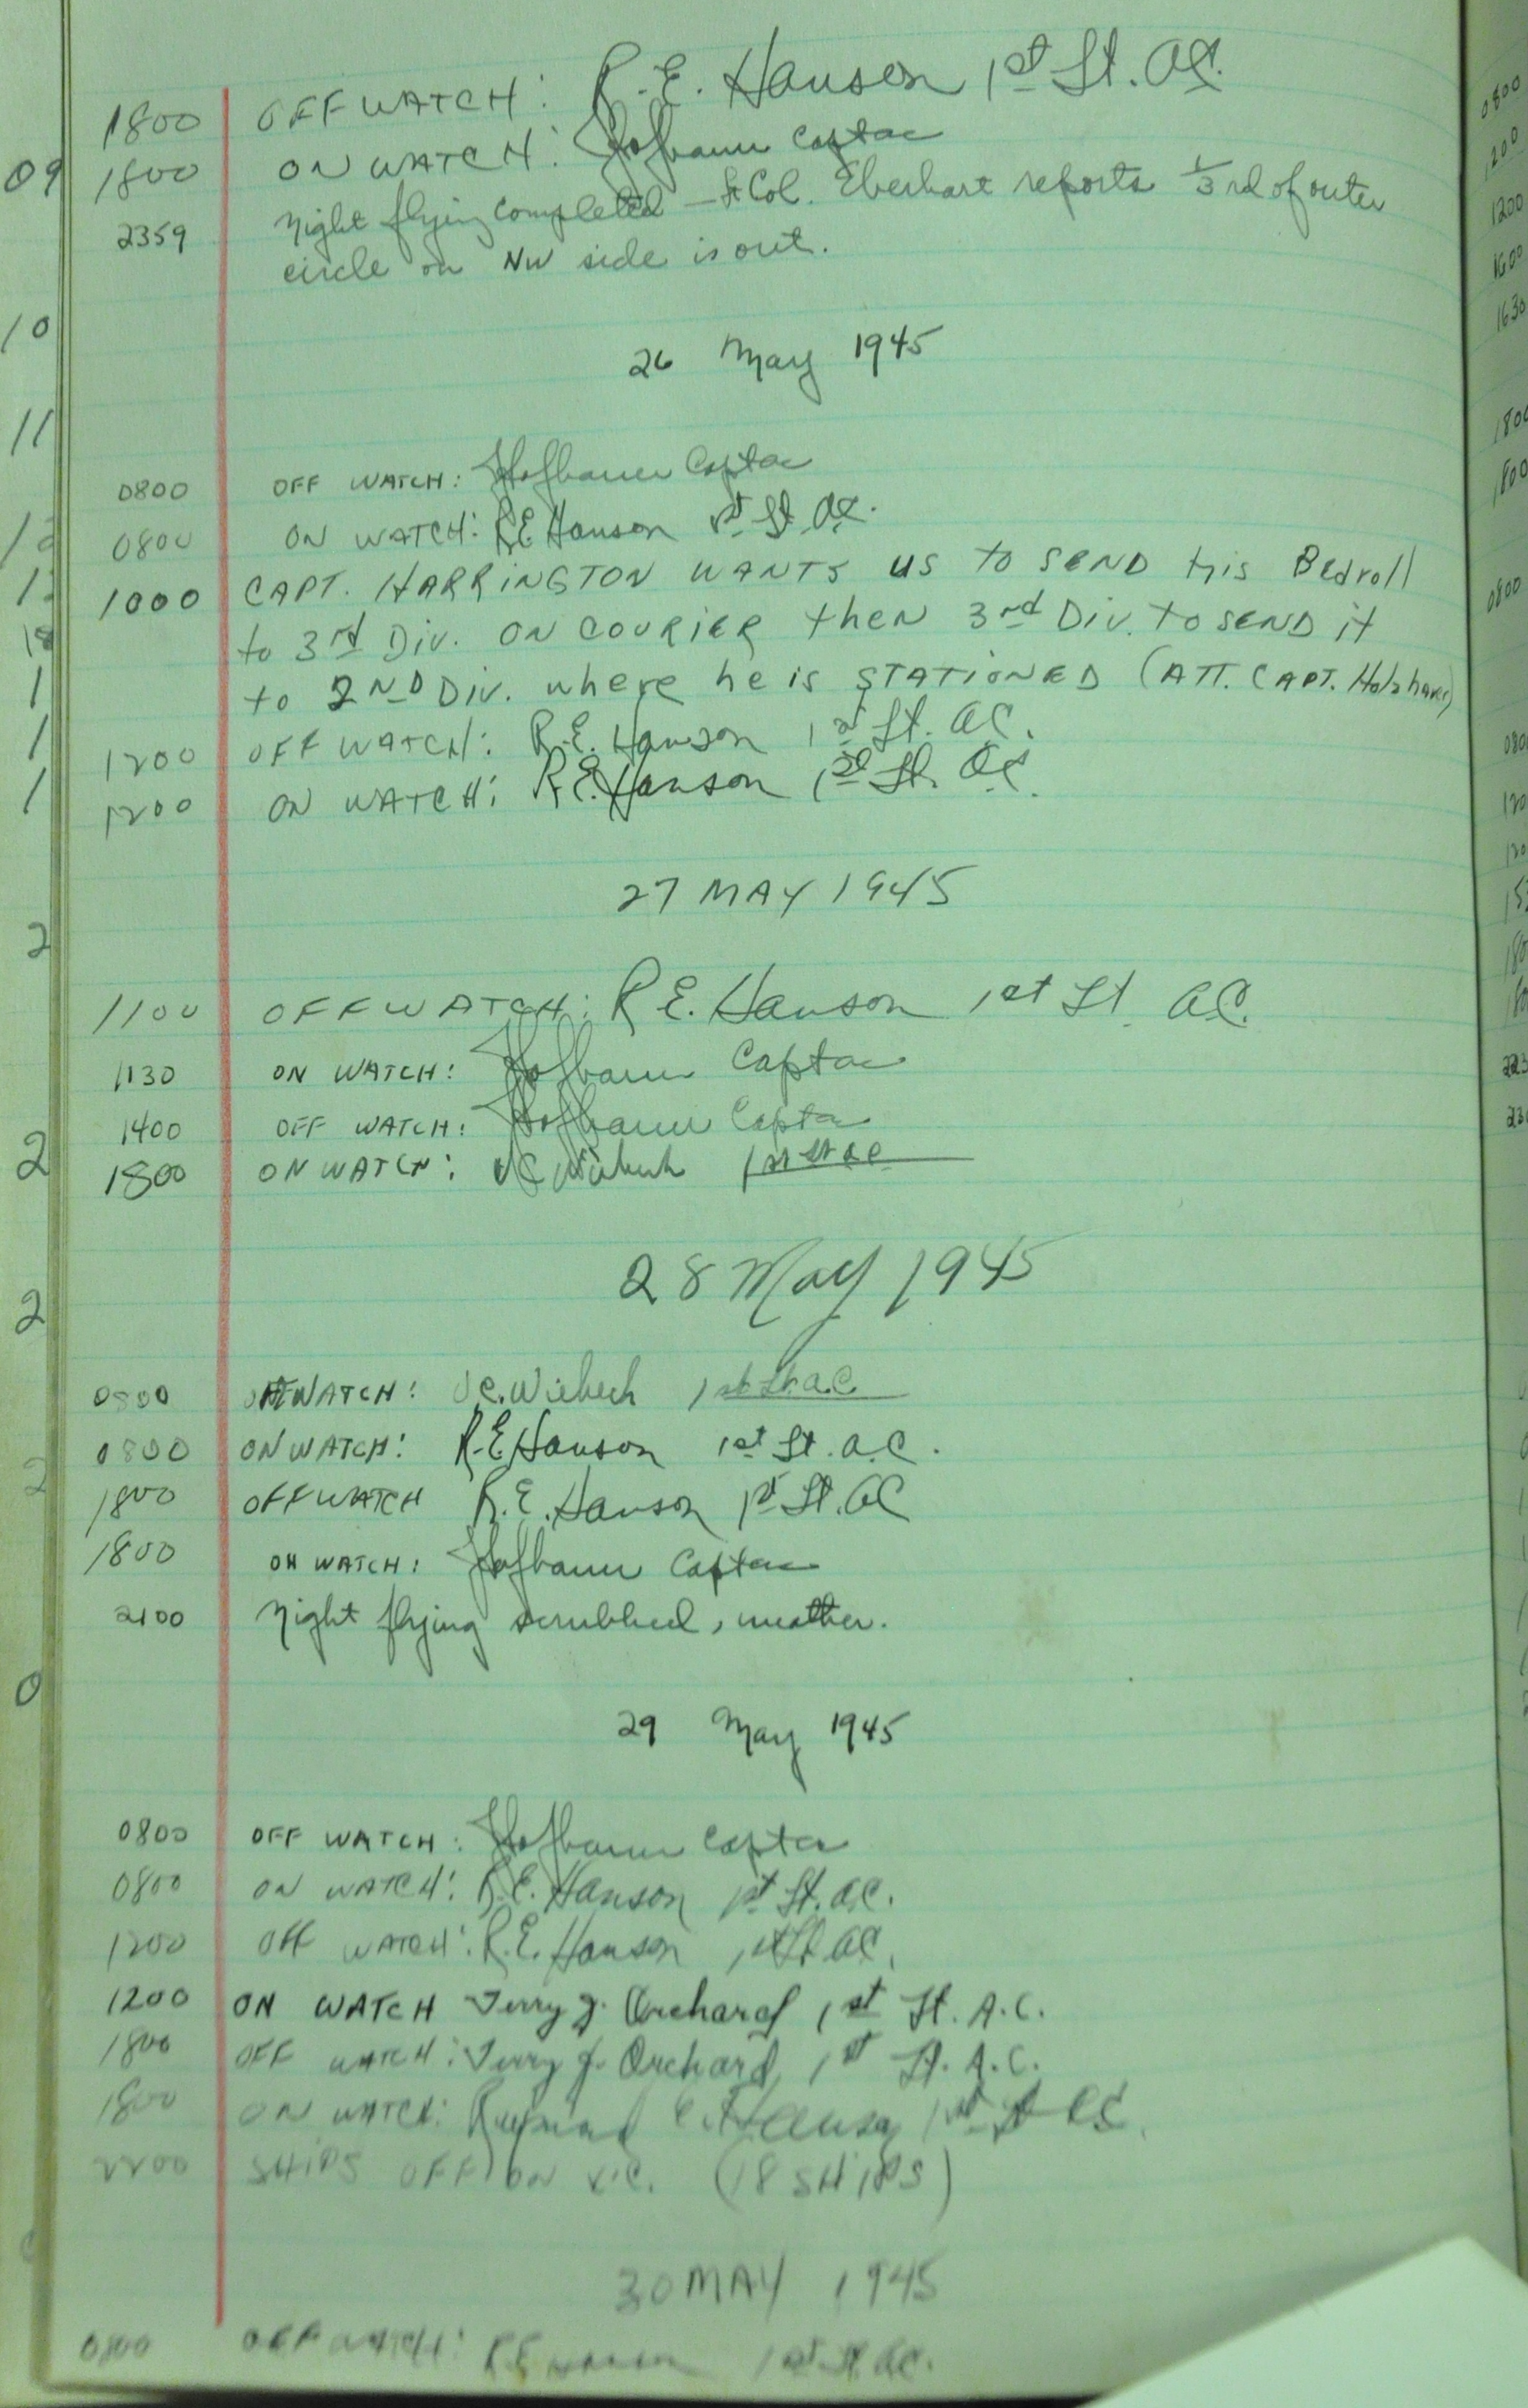 1800 OFF WATCH: R. E. Hanson 1st Lt. AC.
1800 ON WATCH: Hofbauer Capt ac
2359 Night flying completed — Lt Col. Eberhart reports 1/3 rd of outer
circle on NW side is out.
26 May 1945
0800 OFF WATCH: Hofbauer Capt ac
0800 ON WATCH: R E Hanson 1st Lt AC.
1000 CAPT. HARRINGTON WANTS US TO SEND his Bedroll
to 3rd Div. ON COURIER then 3rd Div. TO SEND it
to 2ND Div. where he is STATIONED (ATT. CAPT.
1200 OFF WATCH: R.E. Hanson 1st Lt. AC.
1200 ON WATCH: R.E. Hanson 1st Lt. AC.
27 MAY 1945
1100 OFF WATCH: R E. Hanson 1st Lt. AC.
1130 ON WATCH: Hofbauer Capt ac
1400 OFF WATCH: Hofbauer Capt a
1800 ON WATCH: 1st Lt ac
28 May 1945
0800 OFF WATCH: C. Wiebech 1st Lt a.c.
0800 ON WATCH: R.E Hanson 1st Lt. a.c.
1800 OFF WATCH R. E. Hanson 1st Lt. AC
1800 ON WATCH: Hofbauer Capt ac
2100 Night flying scrubbed, weather.
29 May 1945
0800 OFF WATCH: Hofbauer Capt ac
0800 ON WATCH: R.E. Hanson 1st Lt. a.c.
1200 Off WATCH: R.E. Hanson 1st Lt AC.
1200 ON WATCH Terry J. Orchard 1st Lt. A.C.
1800 OFF WATCH: Terry J. Orchard 1st Lt. A.C.
1800 ON WATCH: Raymond E. Hanson 1st Lt AC.
2200 SHIPS OFF ON (18 SHIPS)
30 MAY 1945
0800 OFF WATCH: R E Hanson 1st Lt AC.